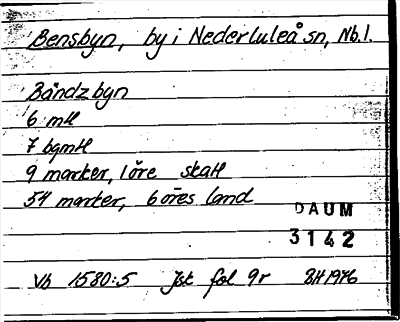 Bensbyn, by i Nederluleå sn, Nb.l.
Båndzbyn
6 mtl
7 bgmtl
9 marker, 1 öre skatt
54 marker, 6 öres land
DAUM
3142
Vb 1580:5 Jsk fol 9r BH 1976